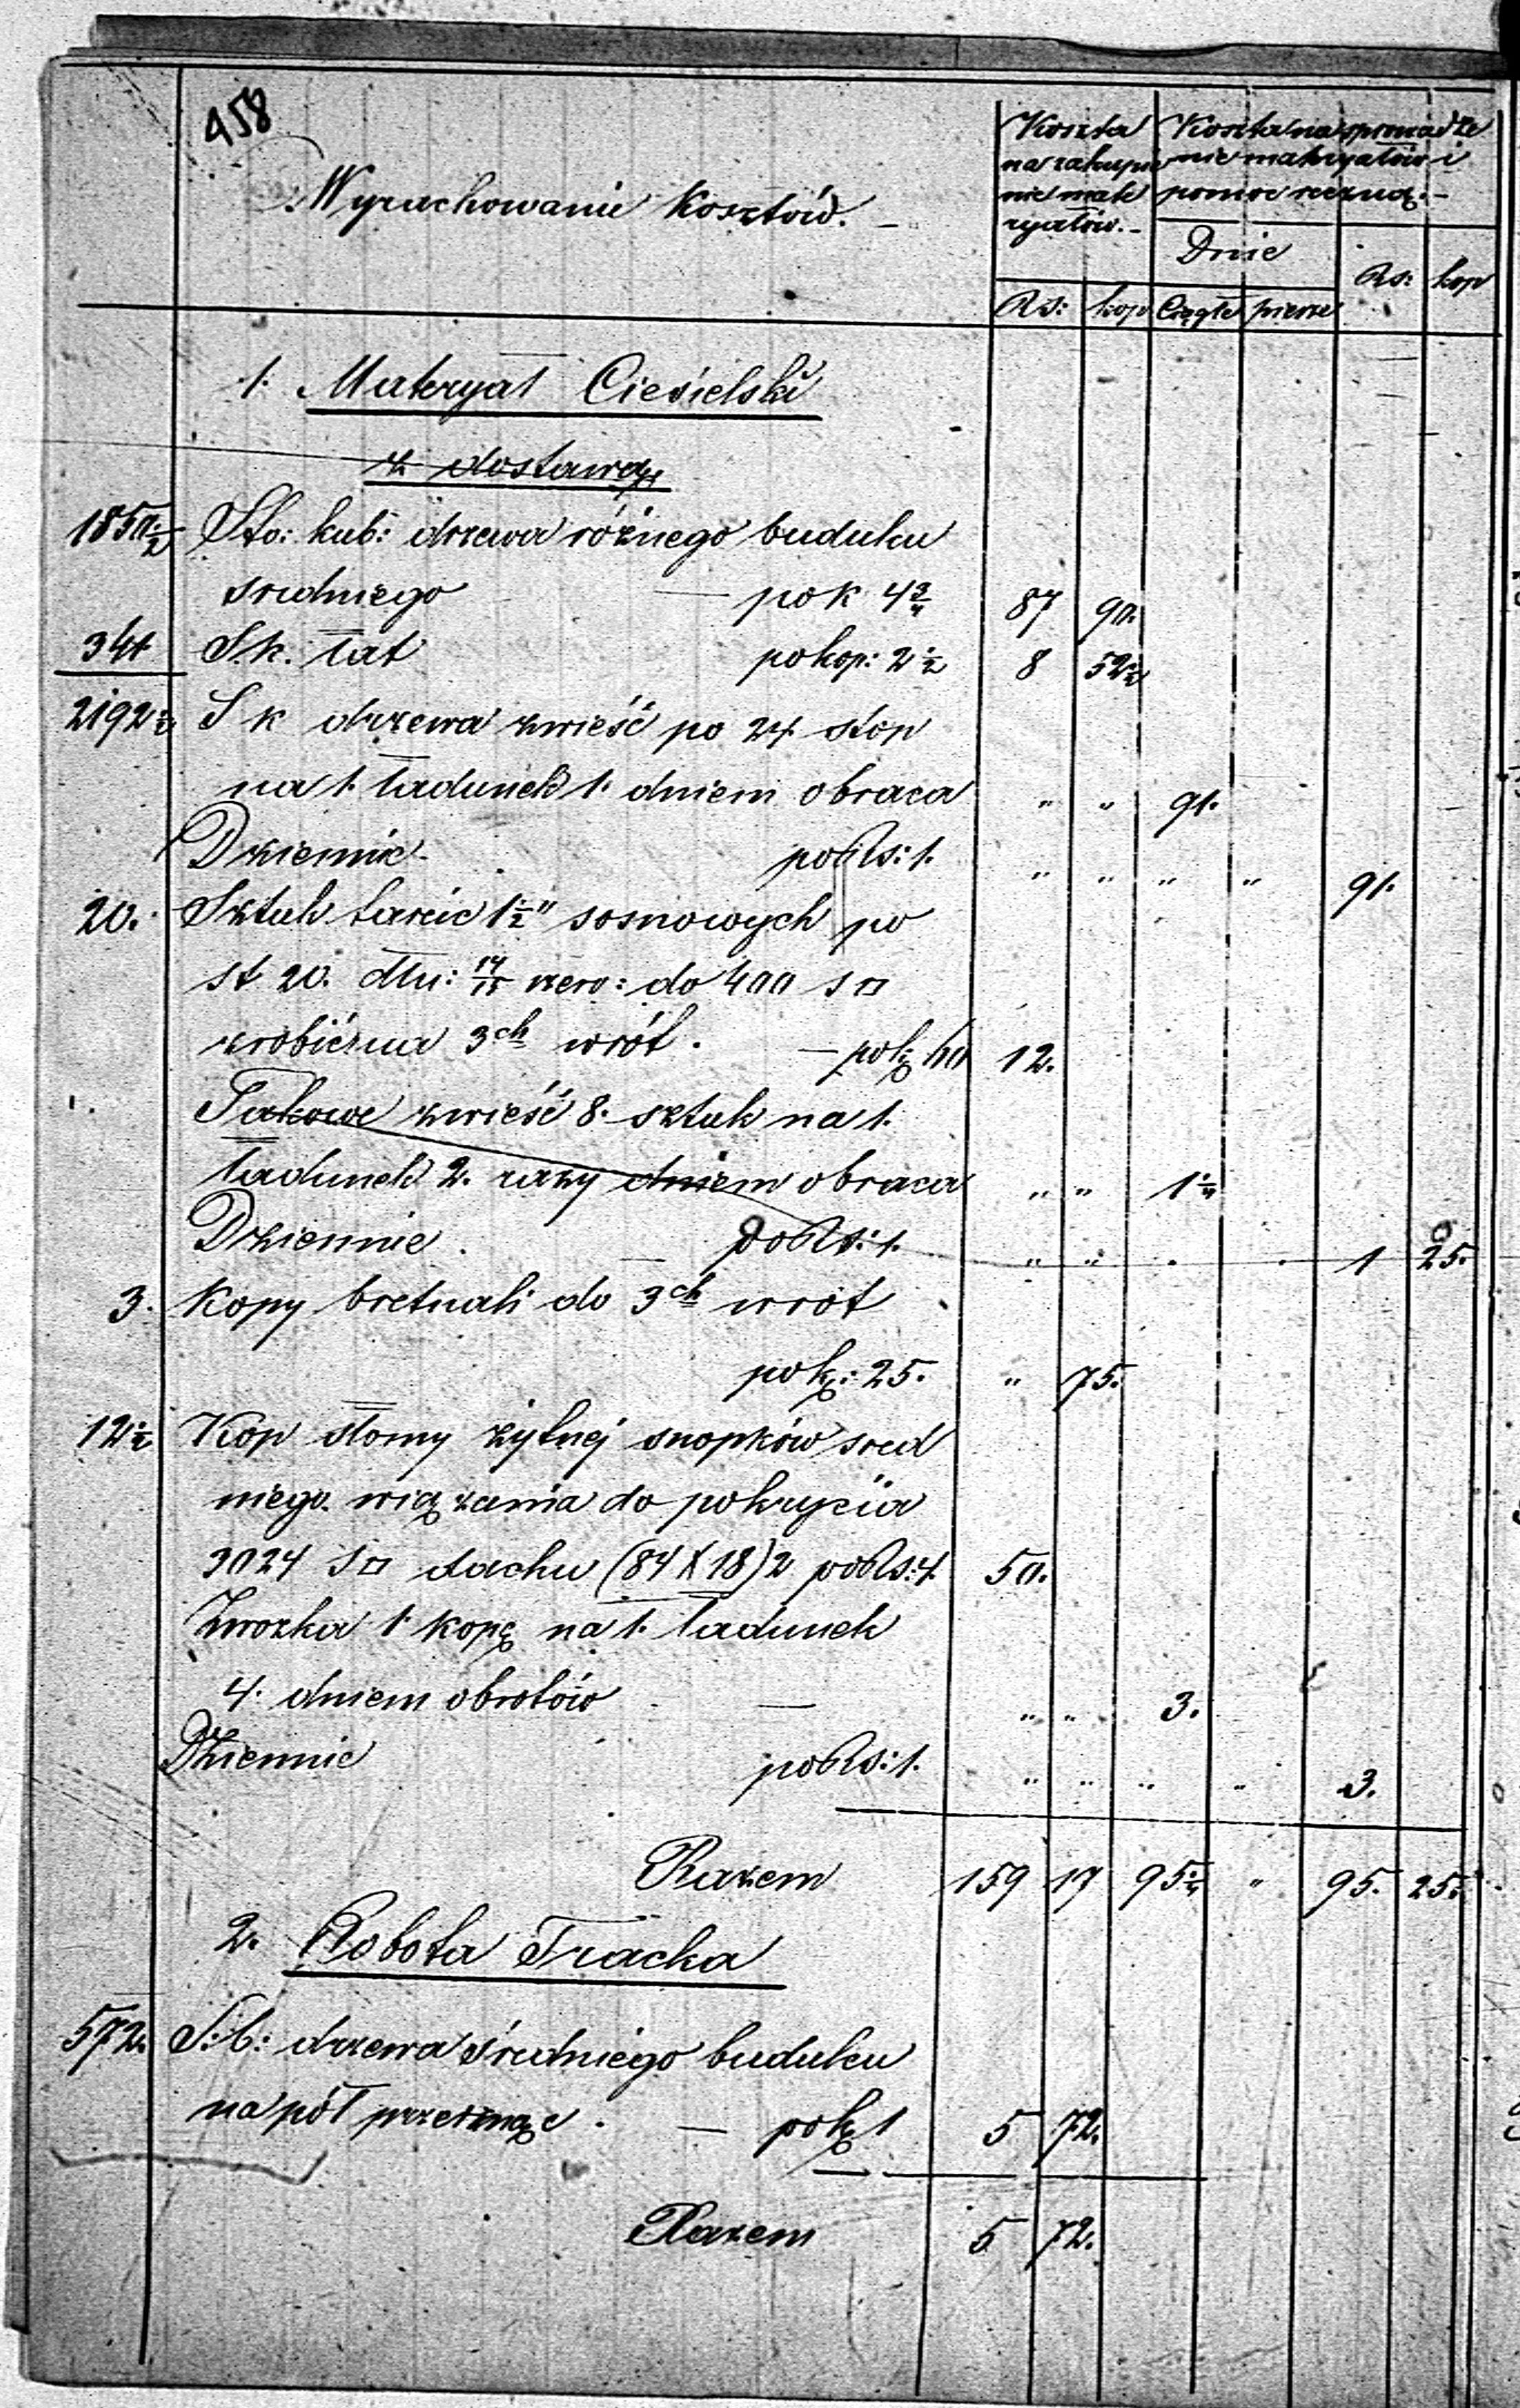 458
Wyrachowanie Kosztów. –
Koszta na zakupie nie mate ryałów. –
Koszta na sprowadze nie materyałów i pomoc ręczną. –
Dnie
Rs: kop Ciągłe piesze Rs: kop
1. Materyał Ciesielski
z dostawą
1850½ Sto: kub: drzewa różnego buduku
średniego — po k 4¾ 87 90.
341 S. k. łat po kop: 2½ 8 52½
2192½ S k drzewa zwieść po 24 stóp
na 1. ładunek 1. dniem obraca " " 91.
Dziennie. po Rs: 1. " " " " 91.
20. Sztuk tarcic 1½" sosnowych po
st 20. dłu: 14/15 szero: do 400 s□
zrobićna 3ch wrót. — po k 60 12.
Takowe zwieść 8. sztuk na 1.
ładunek 2. razy dniem obraca " " 1¼
Dziennie. — po Rs: 1. " " . . 1 25.
3. Kopy bretnali do 3ch wrót
po k: 25. " 75.
12½ Kop słomy żytnej snopków sred
niego wiązania do pokrycia
3024 S□ dachu (84 X 18) 2 po Rs: 4. 50.
Zwozka 1. kopę na 1. ładunek
4. dniem obrotów — " " 3.
Dziennie po Rs: 1. " " " " 3.
Razem 159 17 95¼ " 95. 25.
2. Robota Tracka
572. S: b: drzewa średniego buduku
na pół przerznąc. — po k 1 5 72.
Razem 5 72.